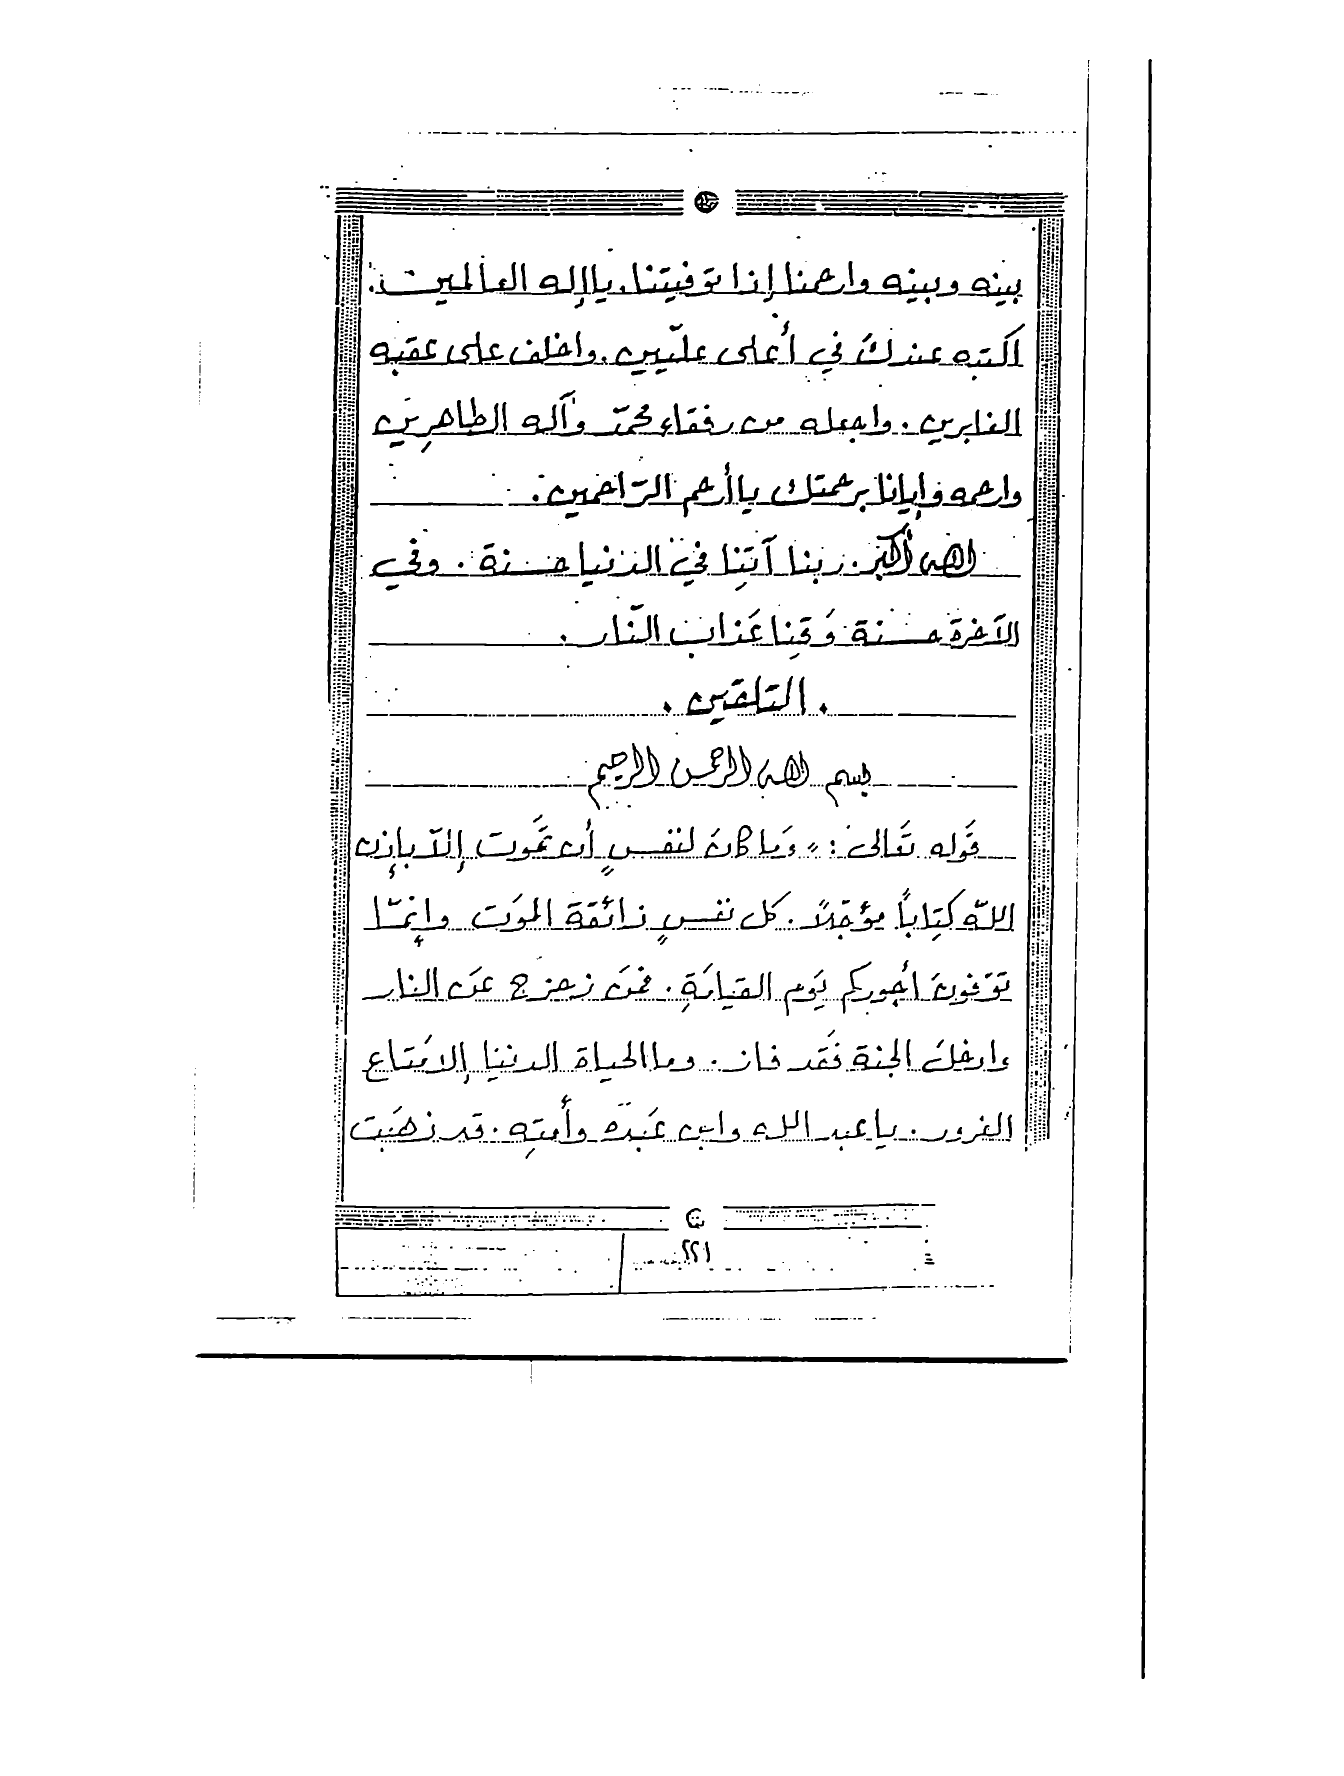 بينه وبينه وارحمنا إذا توفيتنا. يا إله العالمين.
اكتبه عندكَ في أعلى عليّين. واخلف على عقبه
الغابرين. واجعله من رفقاء محمّد وآله الطاهرِين
وارحمه وإيانا برحمتك يا أرحم الرّاحمين.
الله أكبر. ربنا آتِنا في الدنيا حسنة. وفي
الآخرة حسنة وَقِنا عَذاب النّار.
. التلقين .
بسم الله الرحمن الرحيم
قَوله تَعالىَ: „ وَما كانَ لنفسٍ أن تمَوت إلاّ بإذن
اللّه كتِاباً مؤجلاً. كل نفسٍ ذائقة الموَت وإنمّا
توَفونَ أجُوركم يَوم القيامَةِ. فمَن زحزح عَن النار
وادخلَ الجنة فَقد فاز. وما الحياة الدنيا إلا مَتاع
الغرور. يا عبد الله وابن عَبده وأمته. قد ذهَبَت
٢٢١